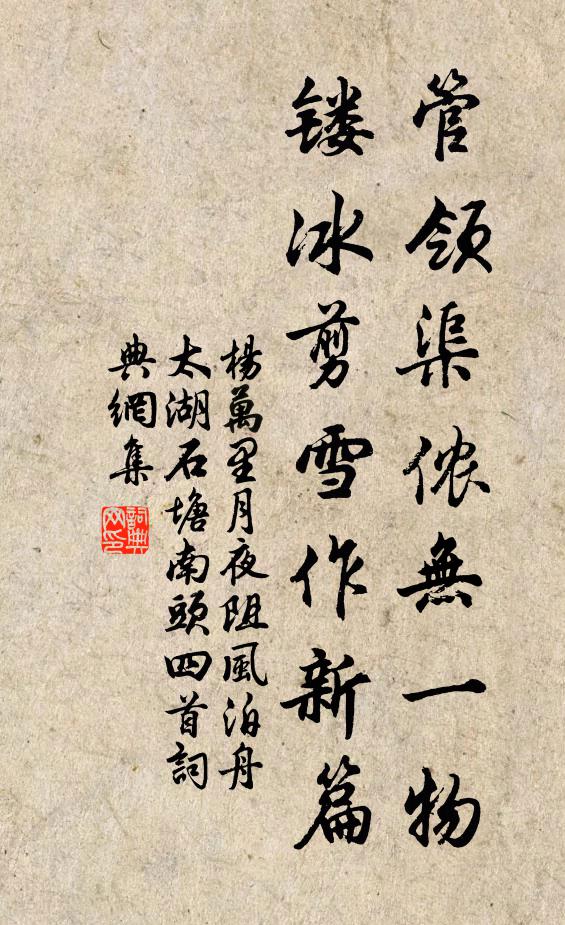 管领渠侬無一物
镂冰剪雪作新篇
楊萬里月夜阻風泊舟
太湖石塘南頭四首詞
典網集
詞典
网印